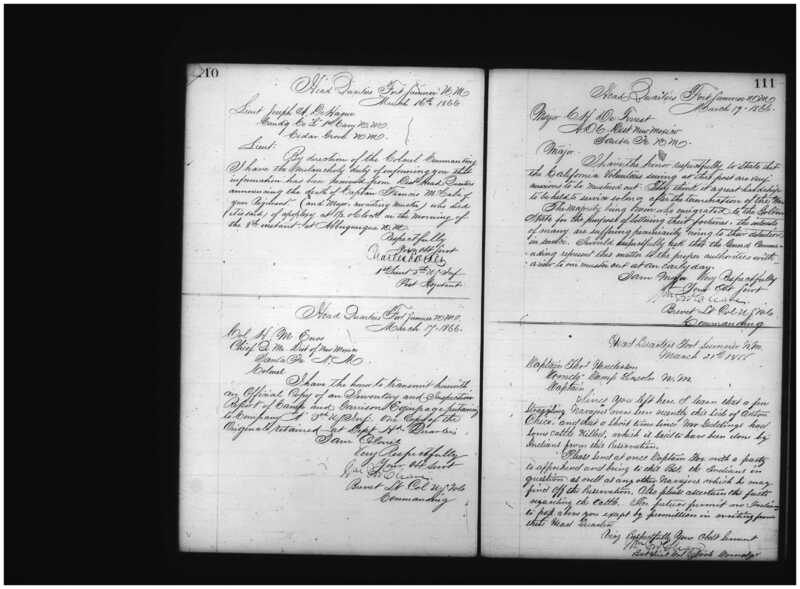 110
Head Quarters Fort Sumner N.M.
March 16th 1866
Lieut Joseph
Comdg Co 1st Cavy N.M.V.
Cedar Creek N.M.
Lieut.
By direction of the Colonel Commanding
I have the Melancholy duty of informing you that
information has been received from Dist Head Quarters
announcing the death of Captain Francis McCabe of
your Regiment (and Major awaiting muster) who died
of apoplexy at o'Clock on the morning of
the 8th instant at Albuquerque N.M.
Respectfully
Your Obt Servt
Charles
1st Lieut 5th U.S. Inf
Post Adjutant
Head Quarters Fort Sumner N.M.
March 17 1866
Col H. M. Enos
Chief Q. M. Dist of New Mexico
Santa Fe N.M.
Colonel
I have the honor to transmit herewith
an Official Copy of an Inventory and Inspection
report of Camp and Garrison Equipage pertaining
to Company 5th U.S. Inf. One Copy of the
Original retained at Dept Hd Quarters
I am Colonel
Very Respectfully
Your Obt Servt
Brevet Lt Col U.S. Vols
Commanding
111
Head Quarters Fort Sumner N.M.
March 19 1866
Major C. H. De Forrest
A.D.C. Dist New Mexico
Santa Fe N.M.
Major
I have the honor respectfully to state that
the California Volunteers serving at this post are very
anxious to be mustered out. They think it a great hardship
to be held in service so long after the termination of the War
The majority being from who emigrated to the Golden
State for the purpose of bettering their fortunes: the interests
of many are suffering pecuniarily owing to their detention
in service. I would respectfully ask that the General Comma-
nding represent this matter to the proper authorities with
a view to our muster out at an early day.
I am Major Very Respectfully
Your Obt Servt
Brevet Lt Col U.S. Vols
Commanding
Head Quarters Fort Sumner N.M.
March 21st 1866
Captain Thos Henderson
Comdg Camp Lincoln N.M.
Captain
Since you left here I learn that a few
straggling Navajoes were seen recently this side of
Chica. and that a short time since Mr Giddings had
some cattle killed, which is said to have been done by
Indians from this Reservation.
Please send at once Captain Fox with a party
to apprehend and bring to this Post the Indians in
question as well as any other Navajoes which he may
find off the Reservation. Also please ascertain the facts
regarding the cattle. For future permit no Indians
to pass above you except by permission in writing from
these Head Quarters
Very Respectfully Your Obdt Servant